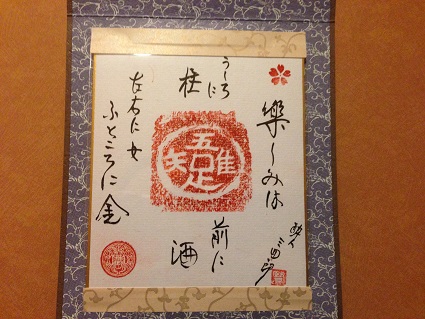 樂しみは
うしろに
柱
前に
酒
左右に女
ふところに金
吾唯足知